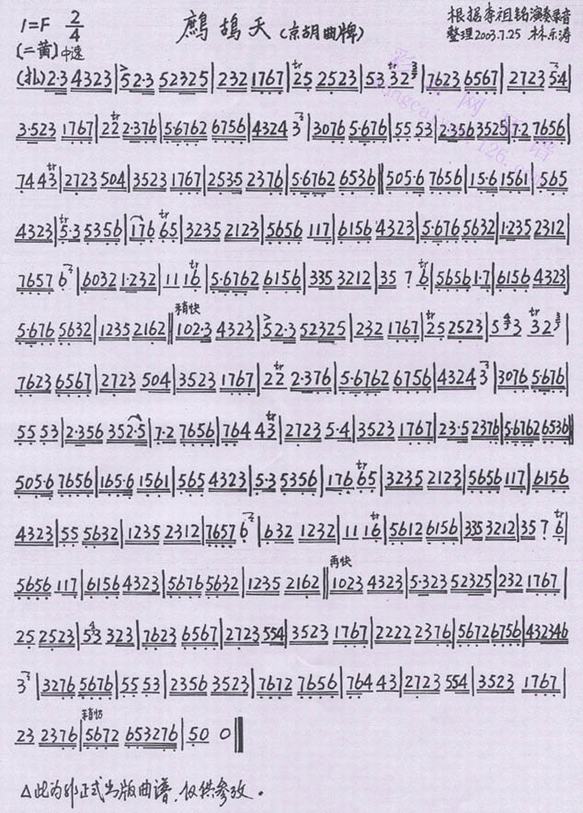 1=F 2/4 鹧鸪天 (京胡曲牌) 根据李祖铭演奏录音
[二黄] 中速 整理2003.7.25 林乐涛
(扎) 2·3 4323 | 52·3 52325 | 232 1767 | tr 25 2523 | 53 32 | 7623 6567 | 2723 54 |
3·523 1767 | 22 2·376 | 5·6762 6756 | 4324 3 | 3076 5·676 | 55 53 | 2·356 3525 | 7·2 7656 |
744 3 | 2723 504 | 3523 1767 | 2535 2376 | 5·6762 6536 || 505·6 7656 | 15·6 1561 | 565
4323 | 5·3 5356 | 176 65 | 3235 2123 | 5656 117 | 6156 4323 | 5·676 5632 | 1·235 2312 |
7657 6 | 6032 1·232 | 11 16 | 5·6762 6156 | 335 3212 | 35 7 6 | 5656 1·7 | 6156 4323 |
稍快
5·676 5632 | 1235 2162 || 102·3 4323 | 52·3 52325 | 232 1767 | 25 2523 | 5 3 32 |
7623 6567 | 2723 504 | 3523 1767 | 22 2·376 | 5·6762 6756 | 4324 3 | 3076 5·676 |
55 53 | 2·356 352·5 | 7·2 7656 | 764 43 | 2723 5·4 | 3523 1767 | 23·5 2376 | 5·6762 6536 ||
505·6 7656 | 165·6 1561 | 565 4323 | 5·3 5356 | 176 65 | 3235 2123 | 5656 117 | 6156
4323 | 55 5632 | 1235 2312 | 7657 6 | 6·32 1232 | 11 16 | 5612 6156 | 335 3212 | 35 7 6 |
再快
5656 117 | 6156 4323 | 5676 5632 | 1235 2162 || 1023 4323 | 5·323 52325 | 232 1767 |
25 2523 | 53 323 | 7623 6567 | 2723 554 | 3523 1767 | 2222 2376 | 5672 6756 | 432346
3 | 3276 5676 | 55 53 | 2356 3523 | 7672 7656 | 764 43 | 2723 554 | 3523 1767 |
23 2376 | 5672 653276 | 50 0 ||
△此为非正式出版曲谱，仅供参考。